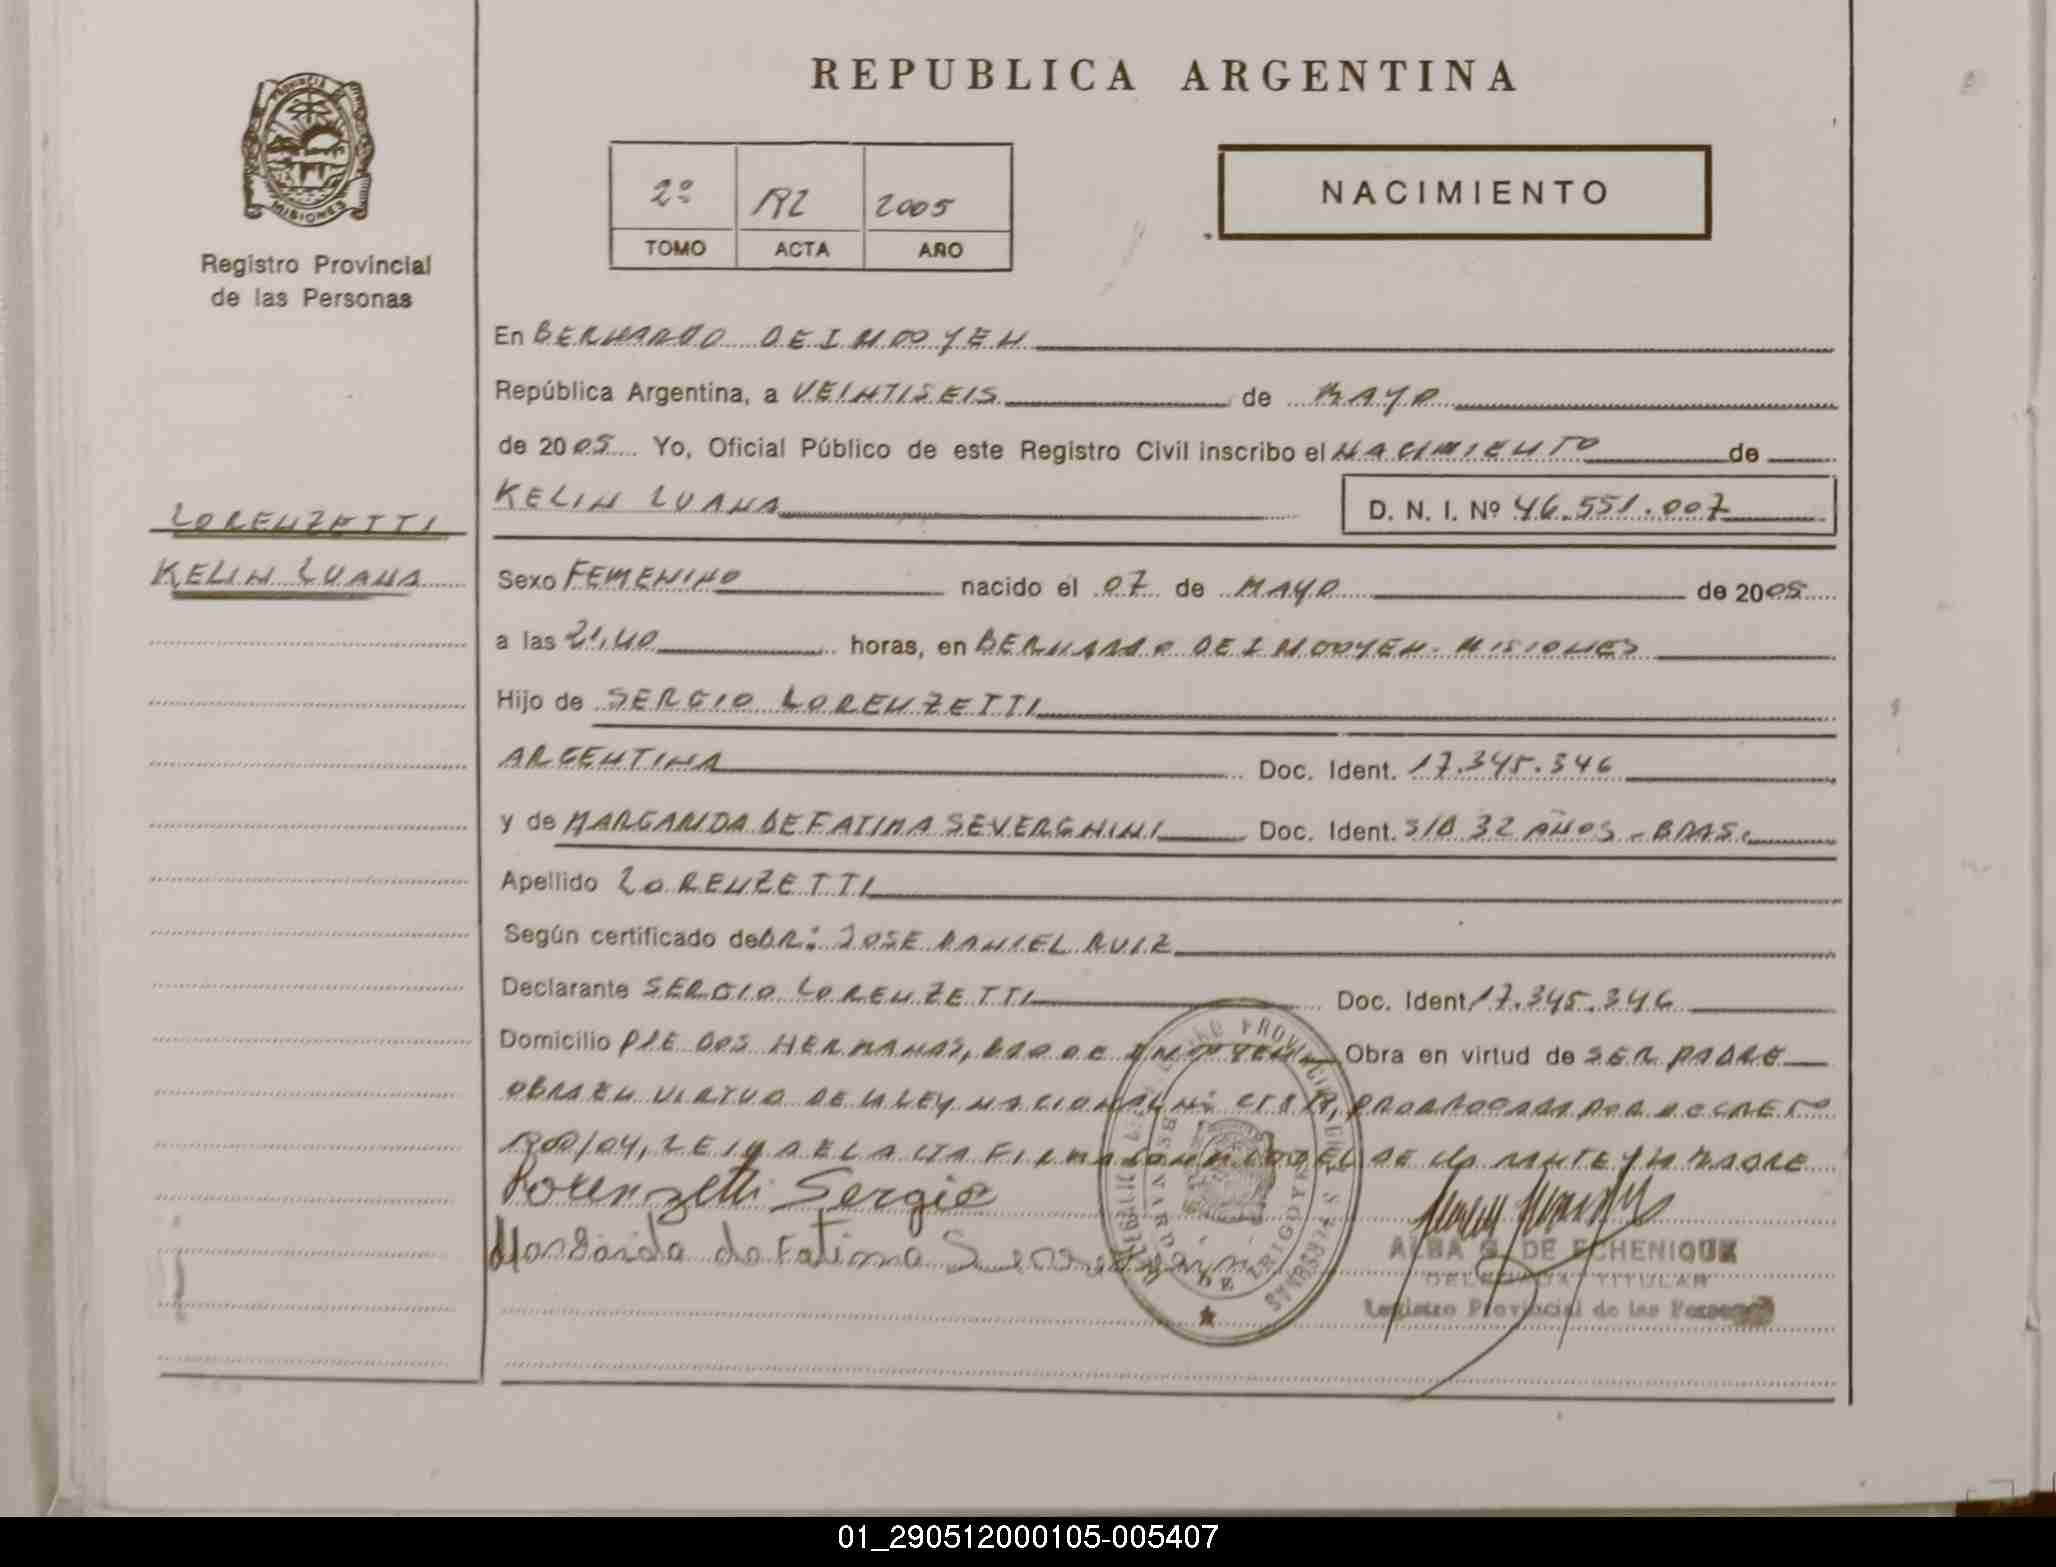 REPUBLICA ARGENTINA
PROVINCIA DE
MISIONES
Registro Provincial
de las Personas
2º
2005
TOMO ACTA AÑO
NACIMIENTO
En BERNARDO DE IRIGOYEN
República Argentina, a VEINTISEIS de MAYO
de 2005 Yo, Oficial Público de este Registro Civil inscribo el NACIMIENTO de
KELIN LUANA D. N. I. Nº 46.551.007
LORENZETTI
KELIN LUANA
Sexo FEMENINO nacido el 07 de MAYO de 2005
a las 21,40 horas, en BERNARDO DE IRIGOYEN - MISIONES
Hijo de SERGIO LORENZETTI
ARGENTINA Doc. Ident. 17.345.346
y de MARGARIDA DE FATIMA SEVERGNINI Doc. Ident. S/D 32 AÑOS - BRAS.
Apellido LORENZETTI
Según certificado de DR: JOSE DANIEL RUIZ
Declarante SERGIO LORENZETTI Doc. Ident. 17.345.346
Domicilio PJE DOS HERMANAS, BDO DE IRIGOYEN Obra en virtud de SER PADRE
OBRA EN VIRTUD DE LA LEY NACIONAL Nº PRORROGADA POR DECRETO
/04, LEIDA EL ACTA FIRMA CONMIGO EL DECLARANTE Y LA MADRE
Lorenzetti Sergio
Margarida de Fatima Severgnini
ALBA G. DE ECHENIQUE
DELEGADA TITULAR
Registro Provincial de las Personas
BERNARDO DE IRIGOYEN
01_290512000105-005407